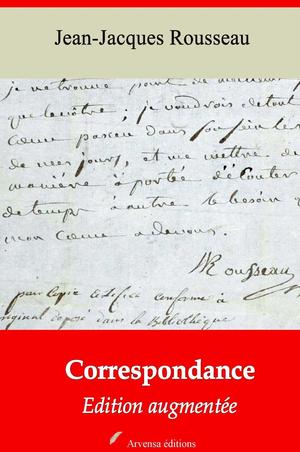 Jean-Jacques Rousseau
je ne trouve point de
que le nôtre; je voudrois de tout
Cœur passer dans son sein le
de mes jours, et me mettre de
maniére à portée d'écouter
de temps à autre le besoin q
mon Cœur a de vous.
JJRousseau
pour Copie conforme à
original déposé dans la Bibliothèque
Correspondance
Edition augmentée
Arvensa éditions